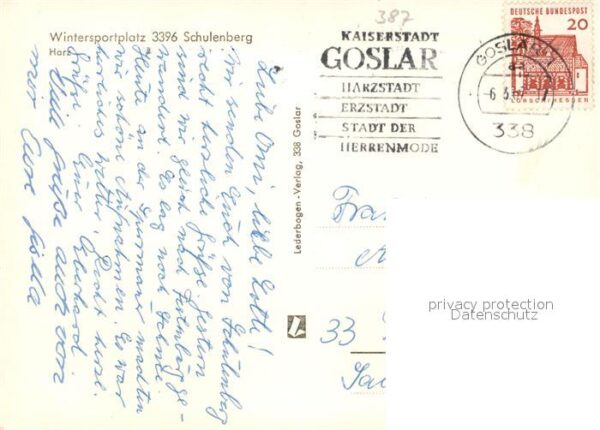 387
Wintersportplatz 3396 Schulenberg
Harz
KAISERSTADT
GOSLAR
HARZSTADT
ERZSTADT
STADT DER
HERRENMODE
GOSLAR
-6.5.
338
DEUTSCHE BUNDESPOST
20
LORSCH/HESSEN
Lederbogen-Verlag, 338 Goslar
Liebe Omi, liebe Lotti!
Wir senden Euch von Schulenberg
recht herzliche Grüße. Gestern
sind wir gleich nach
wandert. Es lag noch Schnee
Heute an der Sperrmauer machten
wir schöne Aufnahmen. Es war
herrliches Wetter. Recht herzl.
Grüße Euer Eberhard
Viele Grüße auch von
mir Eure
Fra
33
privacy protection
Datenschutz